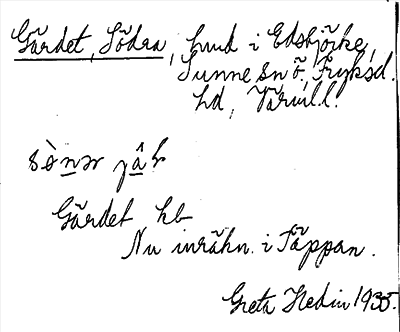 Gärdet, Södra, hmd i Edsbjörke,
Sunne sn ö, Fryksd.
hd, Värml.
Gärdet hb
Nu inräkn. i Täppan.
Greta Hedin 1935.